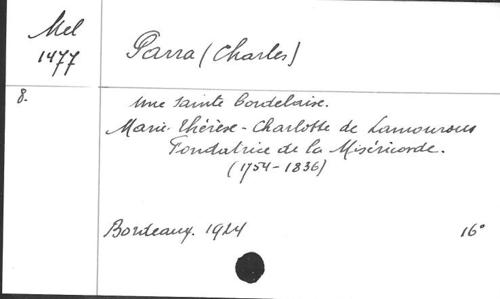 Mel
1477
Parra (Charles)
8.
Une sainte bordelaise.
Marie-Thérèse-Charlotte de Lamourous
Fondatrice de la Miséricorde.
(1754-1836)
Bordeaux. 1924
16°